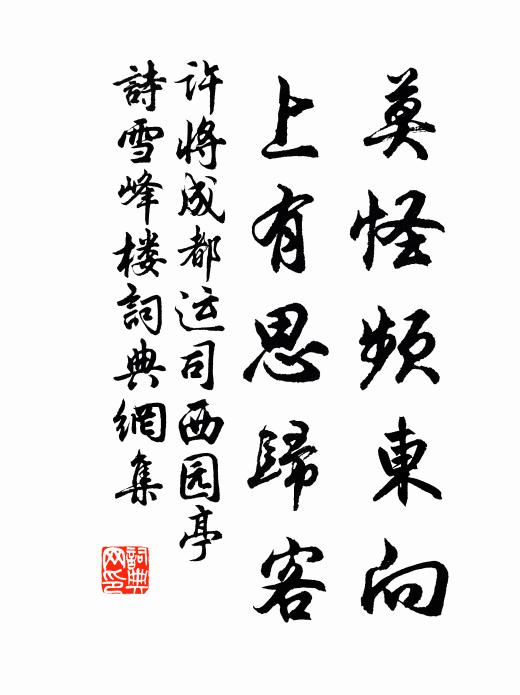 莫怪頻東向
上有思歸客
许將成都运司西园亭
詩雪峰楼詞典網集
詞典
网印